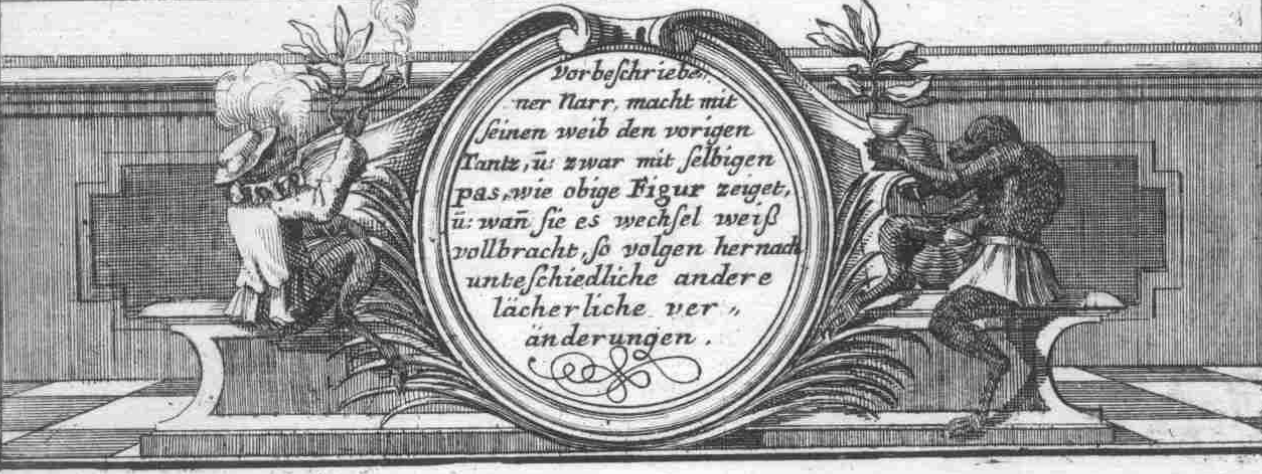 Vorbeschriebe„
ner Narr, macht mit
seinen weib den vorigen
Tantz, ū: zwar mit selbigen
pas, wie obige Figur zeiget,
ū: wañ sie es wechsel weiß
vollbracht, so volgen hernach
unteschiedliche andere
lächerliche ver„
änderungen.